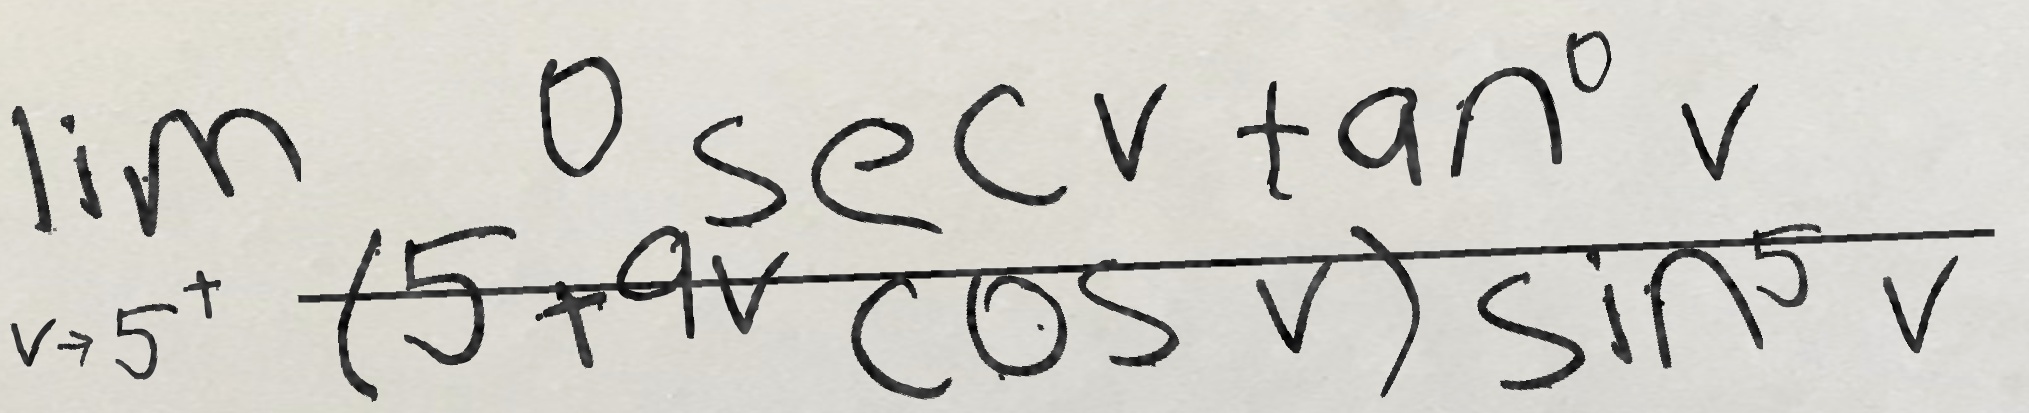 \lim_{v \to 5^+} \frac{0 \sec v \tan^0 v}{(5 + 9v \cos v) \sin^5 v}